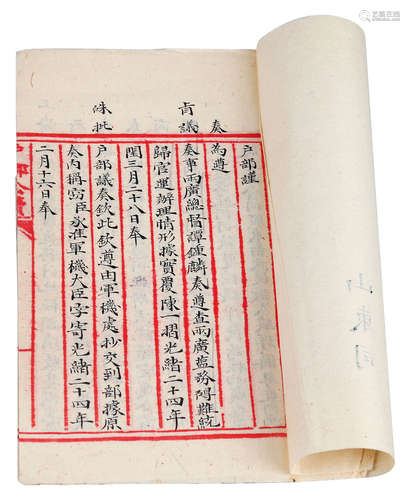 戶部謹
奏為遵
旨議奏事兩廣總督譚鍾麟奏遵查兩廣鹽務礙難統
歸官運辦理情形據實覆陳一摺光緒二十四年
閏三月二十八日奉
硃批戶部議奏欽此欽遵由軍機處抄交到部據原
奏內稱竊臣承准軍機大臣字寄光緒二十四年
二月十六日奉
山東司